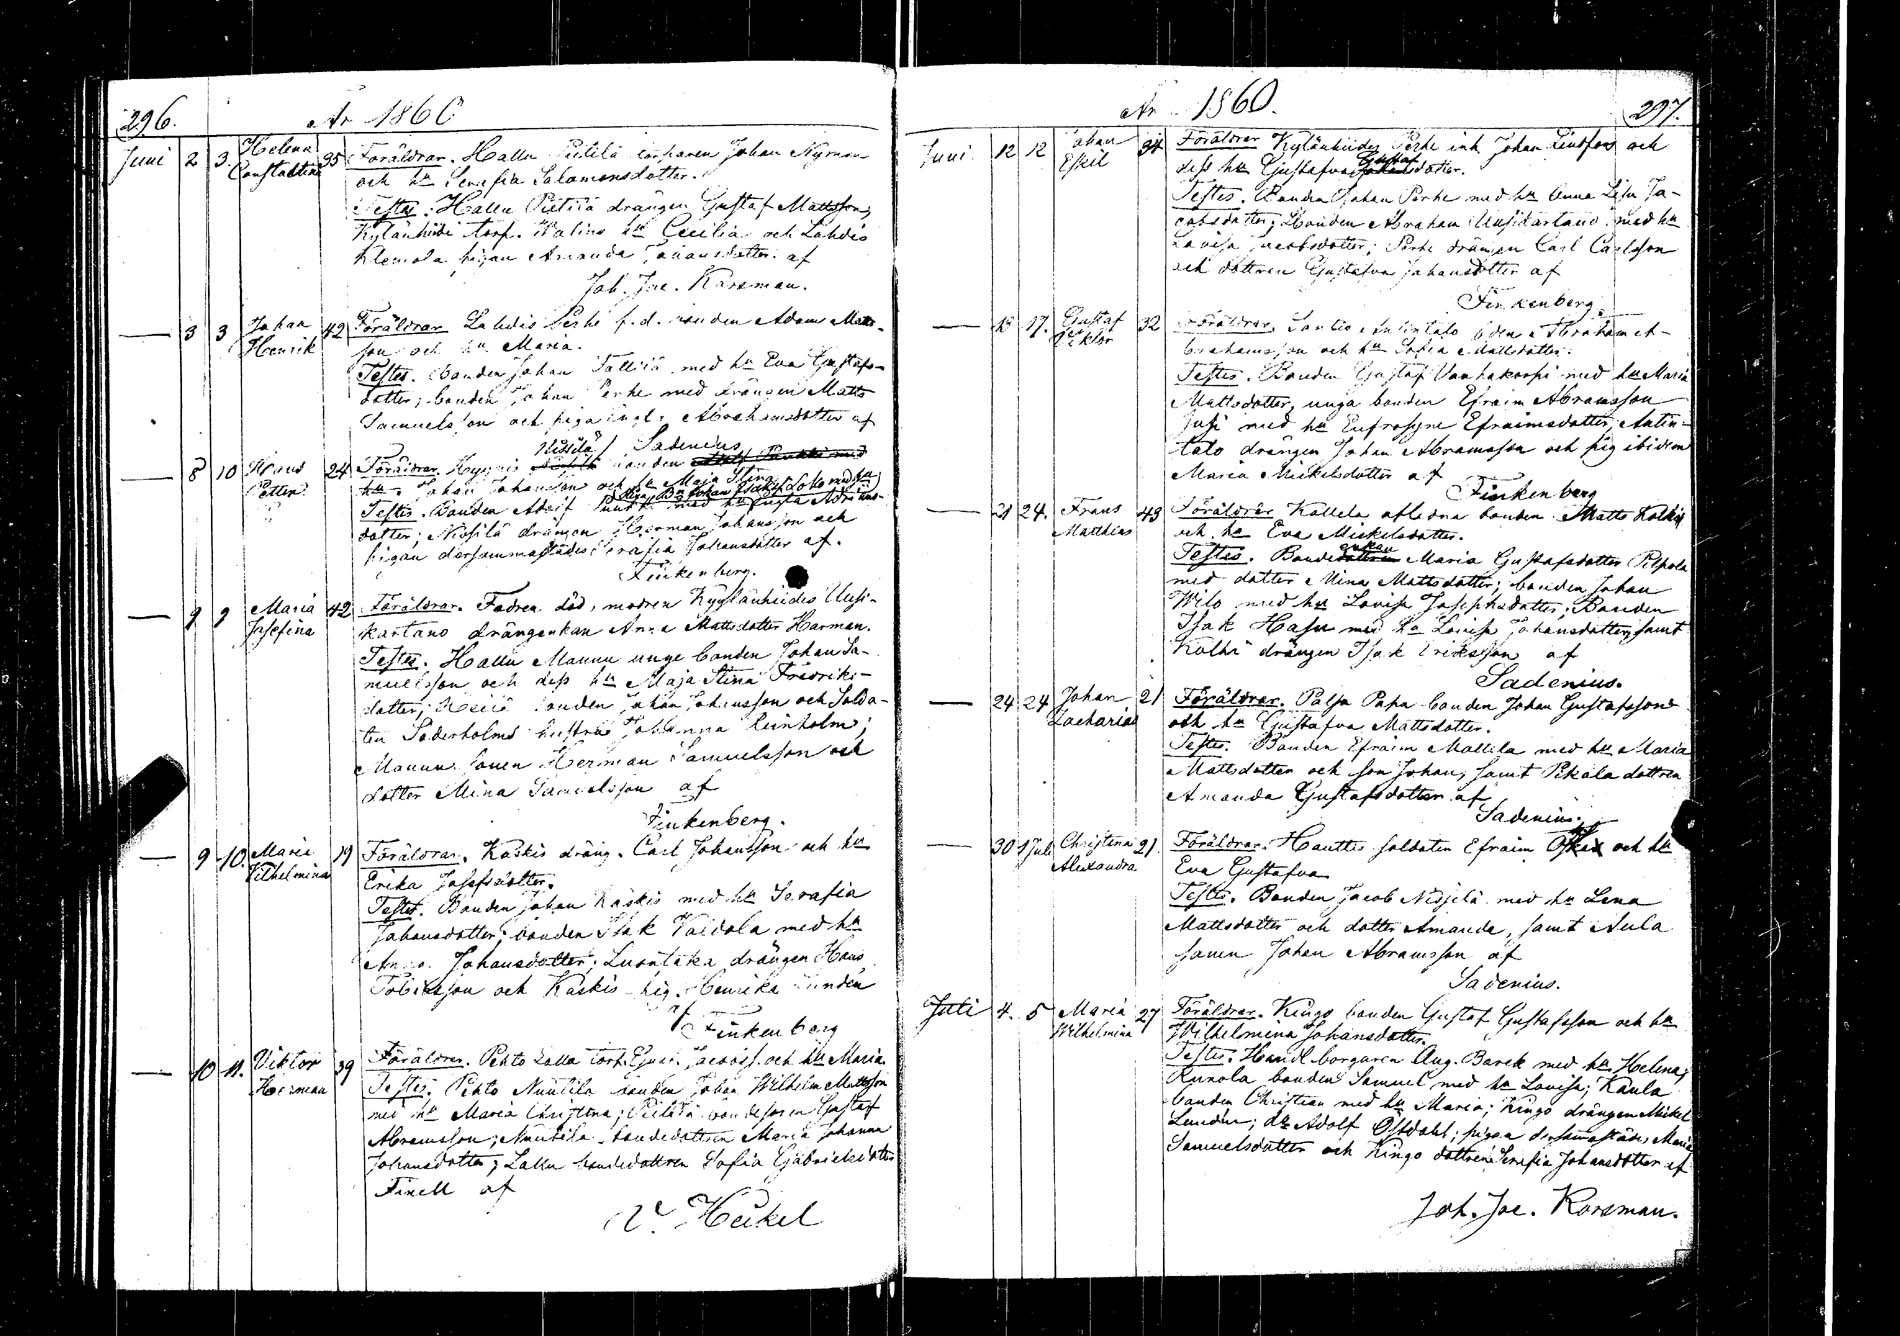 296.
År 1860
Juni 2 3. Helena Constantina 35 Föräldrar. Hallu Pietilä torparen Johan Nyman
och hu Serafia Salomonsdotter.
Testes. Hallu Pietilä drängen Gustaf Mattsson;
Kylänhiidi torp. Walins hu Cecilia och Lahdis
Klemola pigan Amanda Johansdotter af
Joh. Jac. Karsman.
— 3 3 Johan Henrik 42 Föräldrar Lahdis Perhe f.d. bonden Adam Matts-
son och hu Maria.
Testes. bonden Johan Tallilä med hu Eva Gustafs-
dotter; bonden Johan Perhe med drängen Matts
Samuelsson och piga Abrahamsdotter af
Sadenius
— 8 10 Frans Petter 24 Föräldrar. Nissilä bonden
hu. Johan Johansson och hu Maja Stina
Testes. Bonden Adolf med hu
dotter; Nissilä drängen Herman Johansson och
pigan dersammastädes Serafia Johansdotter af.
Finkenberg.
— 9 9 Maria Josefina 42 Föräldrar. Fadren död, modren Kylänhiides Uusi-
kartano drängenkan Anna Mattsdotter Harman.
Testes. Hallu Mannu unge bonden Johan Sa-
muelsson och dess hu Maja Stina Fredriks-
dotter; bonden Johan Johansson och Solda-
ten Söderholms hustru Johanna Reinholm;
Mannu sonen Herman Samuelsson och
dotter Mina Samuelsson af
Finkenberg.
— 9 10. Maria Vilhelmina 19 Föräldrar. Kaskis dräng. Carl Johansson och hu
Erika Josefsdotter.
Testes. Bonden Johan Kaskis med hu Serafia
Johansdotter; bonden Isak Vaidola med hu
Anna Johansdotter; drängen Hans
Tobiasson och Kaskis pig. Henrika Lindén
af
Finkenberg
— 10 11. Viktor Herman 39 Föräldrar. Pehto Lallu torp. Jacobss. och hu Maria
Testes. Pehto Nuutila bonden Johan Wilhelm Mattsson
med hu Maria Christina; Pietilä bondesonen Gustaf
Abramsson; Nuutila bondedottren Maria Johanna
Johansdotter; Lallu bondedottren Sofia Gabrielsdotter
Finell af
V. Heikel
År 1860.
297.
Juni 12 12 Johan Eskil 34 Föräldrar Kylänhiides Perhe inh. Johan Lindfors och
dess hu Gustafva Gustafsdotter.
Testes. Bonden Johan Perhe med hu Anna Lisa Ja-
cobsdotter; bonden Abraham Uusikartano med hu
Lovisa Jacobsdotter; Perhe drängen Carl Carlsson
och dottren Gustafva Johansdotter af
Finkenberg.
— 15 17. Gustaf Viktor 32 Föräldrar. Santio Antintalo bden Abraham A-
brahamsson och hu Sofia Mattsdotter.
Testes. Bonden Gustaf Vanhakoski med hu Maria
Mattsdotter, unga bonden Efraim Abramsson
Jusi med hu Eufrosyne Efraimsdotter; Antin-
talo drängen Johan Abramsson och pig ibidem
Maria Mickelsdotter af
Finkenberg
— 21 24. Frans Matthias 43 Föräldrar Kallela afledna bonden Matts Kolhi
och hu Eva Mickelsdotter.
Testes. Bondeenkan Maria Gustafsdotter Pilpola
med dotter Mina Mattsdotter; bonden Johan
Wilo med hu Lovisa Josephsdotter; Bonden
Isak Hasu med hu Lovisa Johansdotter, samt
Kolhi drängen Isak Eriksson af
Sadenius.
— 24 24 Johan Zacharias 21 Föräldrar. Palsa Papa bonden Johan Gustafsson
och hu Gustafva Mattsdotter.
Testes. Bonden Efraim Mattila med hu Maria
Mattsdotter och son Johan, samt Pikala dottren
Amanda Gustafsdotter af
Sadenius.
— 30 1 Juli Christina Alexandra 21. Föräldrar. Hauttis soldaten Efraim och hu
Eva Gustafva
Testes. Bonden Jacob Nissilä med hu Lena
Mattsdotter och dotter Amanda, samt Aula
sonen Johan Abramsson af
Sadenius.
Juli 4. 5 Maria Wilhelmina 27 Föräldrar. Kingo bonden Gustaf Gustafsson och hu
Wilhelmina Johansdotter.
Testes. Handl. borgaren Aug. Barck med hu Helena;
Runola bonden Samuel med hu Lovisa; Kaula
bonden Christian med hu Maria; Kingo drängen Mickel
Lundén; do Adolf Östdahl; pigan dersammastädes Maria
Samuelsdotter och Kingo dottren Serafia Johansdotter af
Joh. Jac. Karsman.